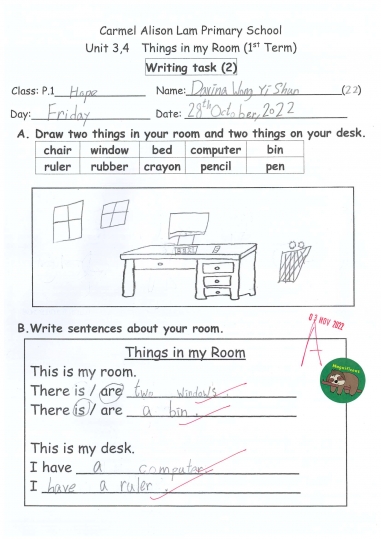 Carmel Alison Lam Primary School
Unit 3,4 Things in my Room (1st Term)
Writing task (2)
Class: P.1 Hope Name: Davina Wong Yi Shun (22)
Day: Friday Date: 28th October, 2022
A. Draw two things in your room and two things on your desk.
chair window bed computer bin
ruler rubber crayon pencil pen
03 NOV 2022
A
B.Write sentences about your room.
Things in my Room
This is my room.
There is / are two windows.
There is / are a bin.
This is my desk.
I have a computer
I have a ruler.